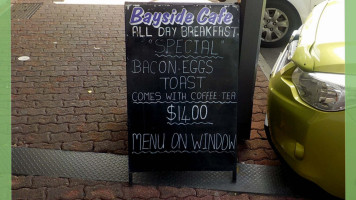 Bayside Cafe
ALL DAY BREAKFAST
"SPECIAL"
BACON.EGGS
TOAST
COMES WITH COFFEE TEA
$14.00
MENU ON WINDOW